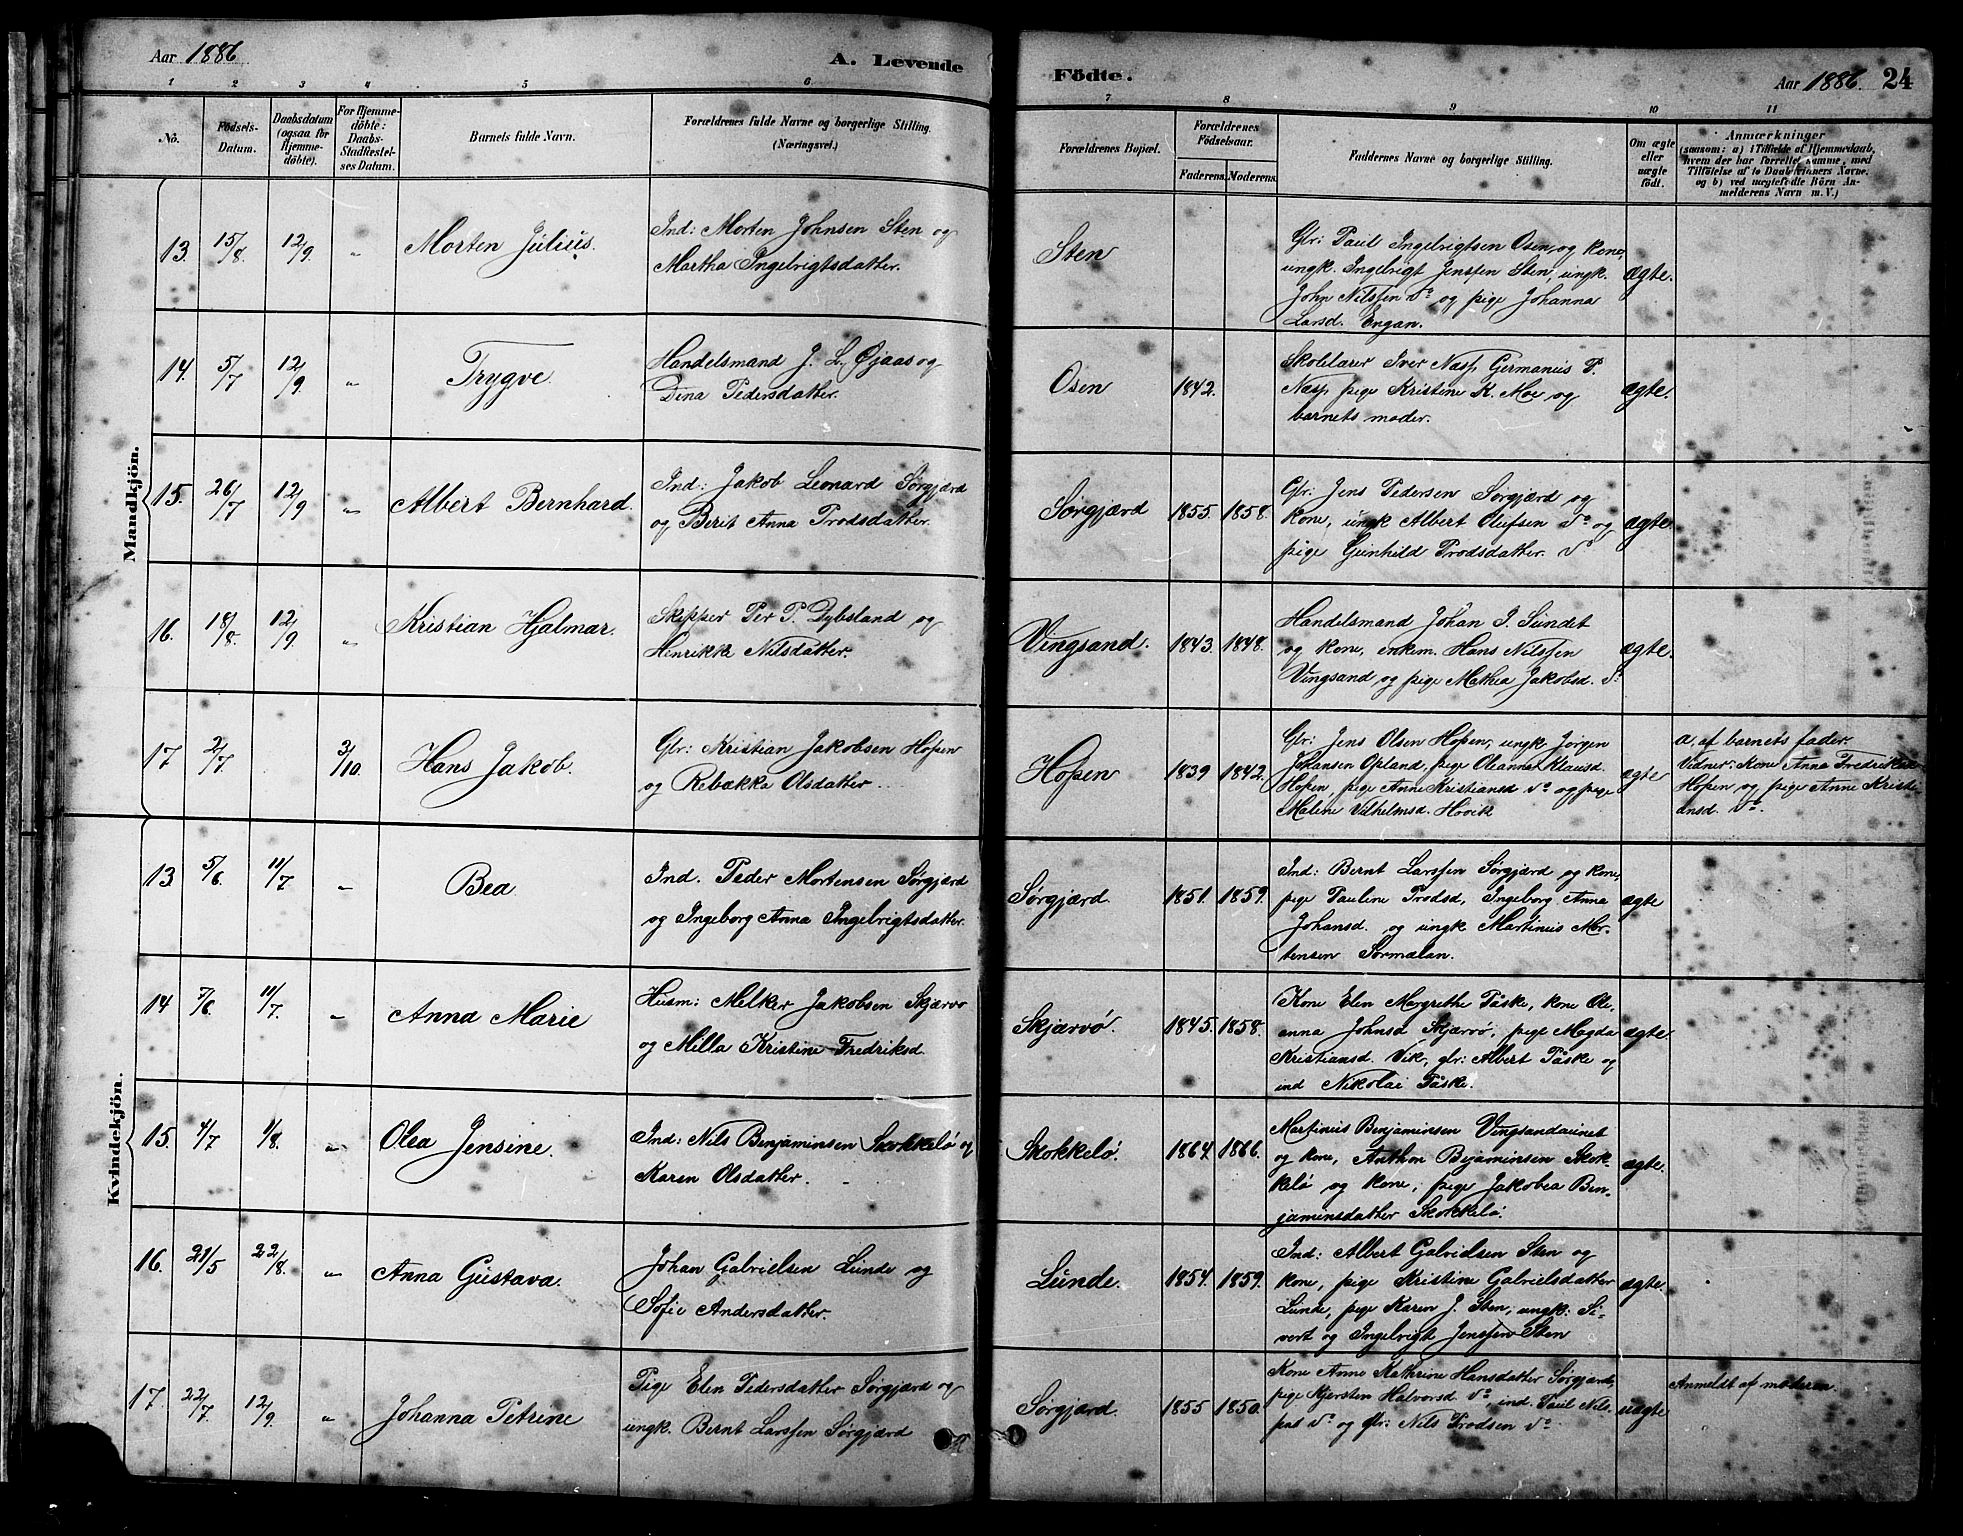 Aar 1886
A. Levende
1 2 3 4 5 6
No.
Födsels-
Datum.
Daabsdatum
(ogsaa för
Hjemme-
döbte).
For Hjemme-
döbte:
Daabs-
Stadfæstel-
ses Datum.
Barnets fulde Navn.
Forældrenes fulde Navne og borgerlige Stilling.
(Næringsvei.)
Mandkjön.
13. 15/8. 12/9. „ Morten Julius.
Ind: Morten Johnsen Sten og
Martha Ingelrigtsdatter.
14. 5/7 12/9. „ Trygve.
Handelsmand J. L. Øjaas og
Dina Pedersdatter.
15. 26/7 12/9 „ Albert Bernhard.
Ind: Jakob Leonard Sørgjærd
og Berit Anna Trodsdatter.
16. 18/8. 12/9 „ Kristian Hjalmar.
Skipper Per P. Dybsland og
Henrikka Nilsdatter.
17 2/7. 3/10. Hans Jakob.
Gbr: Kristian Jakobsen Hopen
og Rebækka Olsdatter.
Kvindekjön.
13 5/6. 11/7 „ Bea.
Ind. Peder Mortensen Sørgjærd
og Ingeborg Anna Ingelrigtsdatter.
14 7/6. 11/7. „ Anna Marie
Husm: Melker Jakobsen Skjærvø
og Milla Kristine Fredriksd.
15. 4/7 1/8. „ Olea Jensine.
Ind: Nils Benjaminsen Skokkelø og
Karen Olsdatter.
16. 21/5 22/8. „ Anna Gustava.
Johan Gabrielsen Lunde og
Sofie Andersdatter.
17. 22/7. 12/9. „ Johanna Petrine
Pige Elen Pedersdatter Sørgjærd og
ungk. Bernt Larssen Sørgjærd
Födte.
Aar 1886. 24
7 8 9 10 11
Forældrenes Bopæl.
Forældrenes
Födselsaar.
Faderens. Moderens.
Faddernes Navne og borgerlige Stilling.
Om ægte
eller
uægte
födt.
Anmærkninger
(saasom: a) i Tilfælde af Hjemmedaab,
hvem der har forrettet samme, med
Tilföielse af to Daabsvidners Navne,
og b) ved uægtefödte Börn An-
melderens Navn m. V.)
Sten
Gbr: Paul Ingelrigtsen Osen og kone,
ungk. Ingelrigt Jenssen Sten, ungk.
John Nilssen do og pige Johanna
Larsd. Engan.
ægte.
Osen 1842.
Skolelærer Iver Næsp Germanus P.
Næsp pige Kristine K. Moe og
barnets moder.
ægte.
Sørgjærd 1855. 1858.
Gbr: Jens Pedersen Sørgjærd og
kone, ungk Albert Olufsen do og
pige Gunhild Trodsdatter. do
ægte.
Vingsand. 1843. 1848.
Handelsmand Johan J. Sundet
og kone, enkem. Hans Nilssen
Vingsand og pige Mathea Jakobsd. do
ægte.
Hopen 1839 1842.
Gbr: Jens Olsen Hopen, ungk Jørgen
Johansen Opland, pige Oleanna Klausd.
Hopen, pige Anne Kristiansd do og pige
Maline Vilhelmsd. Hovik
ægte
a, af barnets fader.
Vidner: Kone Anna Fredrikke
Hopen og pige Anne Kristi-
ansd. do.
Sørgjærd. 1851. 1859.
Ind: Bernt Larssen Sørgjærd og kone,
pige Pauline Trodsd, Ingeborg Anna
Johansd. og ungk Martinus Mor-
tensen Sørmælan.
ægte
Skjærvø. 1845. 1858.
Kone Elen Margrethe Påske, kone Ole-
anna Johnsd Skjærvø, pige Magda
Kristiansd. Vik, gbr: Albert Påske og
ind Nikolai Påske.
ægte.
Skokkelø. 1864. 1866.
Martinus Benjaminsen Vingsandaunet
og kone, Anthon Bejaminsen Skok-
kelø og kone, pige Jakobea Ben-
jaminsdatter Skokkelø.
ægte.
Lunde. 1854. 1859.
Ind: Albert Gabrielsen Sten og
kone, pige Kristine Gabrielsdatter
Lunde, pige Karen J. Sten, ungk: Si-
vert og Ingelrigt Jenssen Sten
ægte.
Sørgjærd. 1855 1850.
Kone Anne Kathrine Hansdatter Sørgjærd,
pige Kjersten Halvorsd do, ind. Paul Nils-
do og gbr: Nils Trodsen do.
uægte
Anmeldt af moderen.